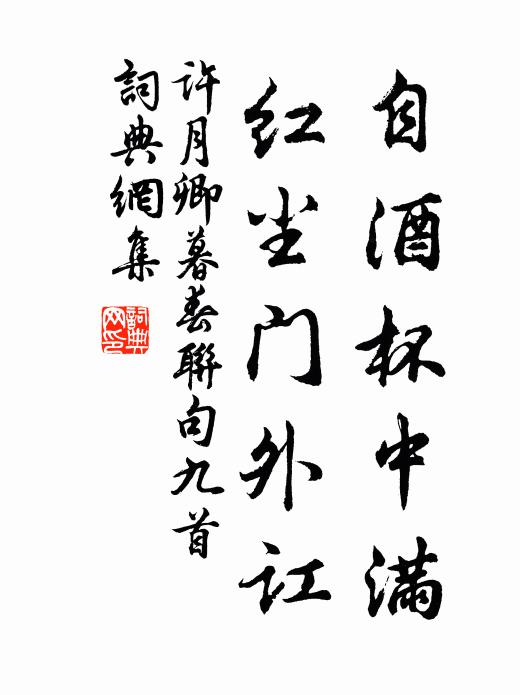 自酒杯中滿
红尘门外讧
许月卿暮春聯句九首
詞典網集
詞典
网印